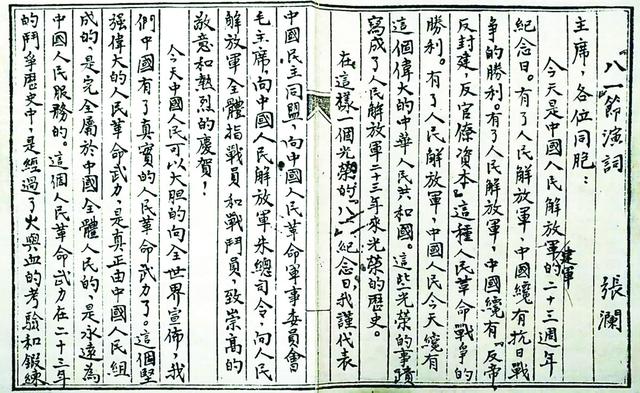 "八一"節演詞　張瀾
主席，各位同胞：
今天是中國人民解放軍的建軍二十三週年
紀念日。有了人民解放軍，中國纔有抗日戰
争的勝利。有了人民解放軍，中國纔有「反帝
反封建，反官僚資本」這種人民革命戰爭的
勝利。有了人民解放軍，中國人民今天纔有
這個偉大的中華人民共和國。這些光榮的事蹟
寫成了人民解放軍二十三年來光榮的歷史。
在這樣一個光榮的「八一」紀念日，我謹代表
中國民主同盟，向中國人民革命軍事委員會
毛主席，向中國人民解放軍朱總司令，向人民
解放軍全體指戰員和戰鬥員，致崇高的
敬意和熱烈的慶賀！
今天中國人民可以大胆的向全世界宣佈，我
們中國有了真實的人民革命武力了。這個堅
强偉大的人民革命武力，是真正由中國人民組
成的，是完全屬於中國全體人民的，是永遠為
中國人民服務的。這個人民革命武力在二十三年
的鬥爭歷史中，是經過了火與血的考驗和鍛練